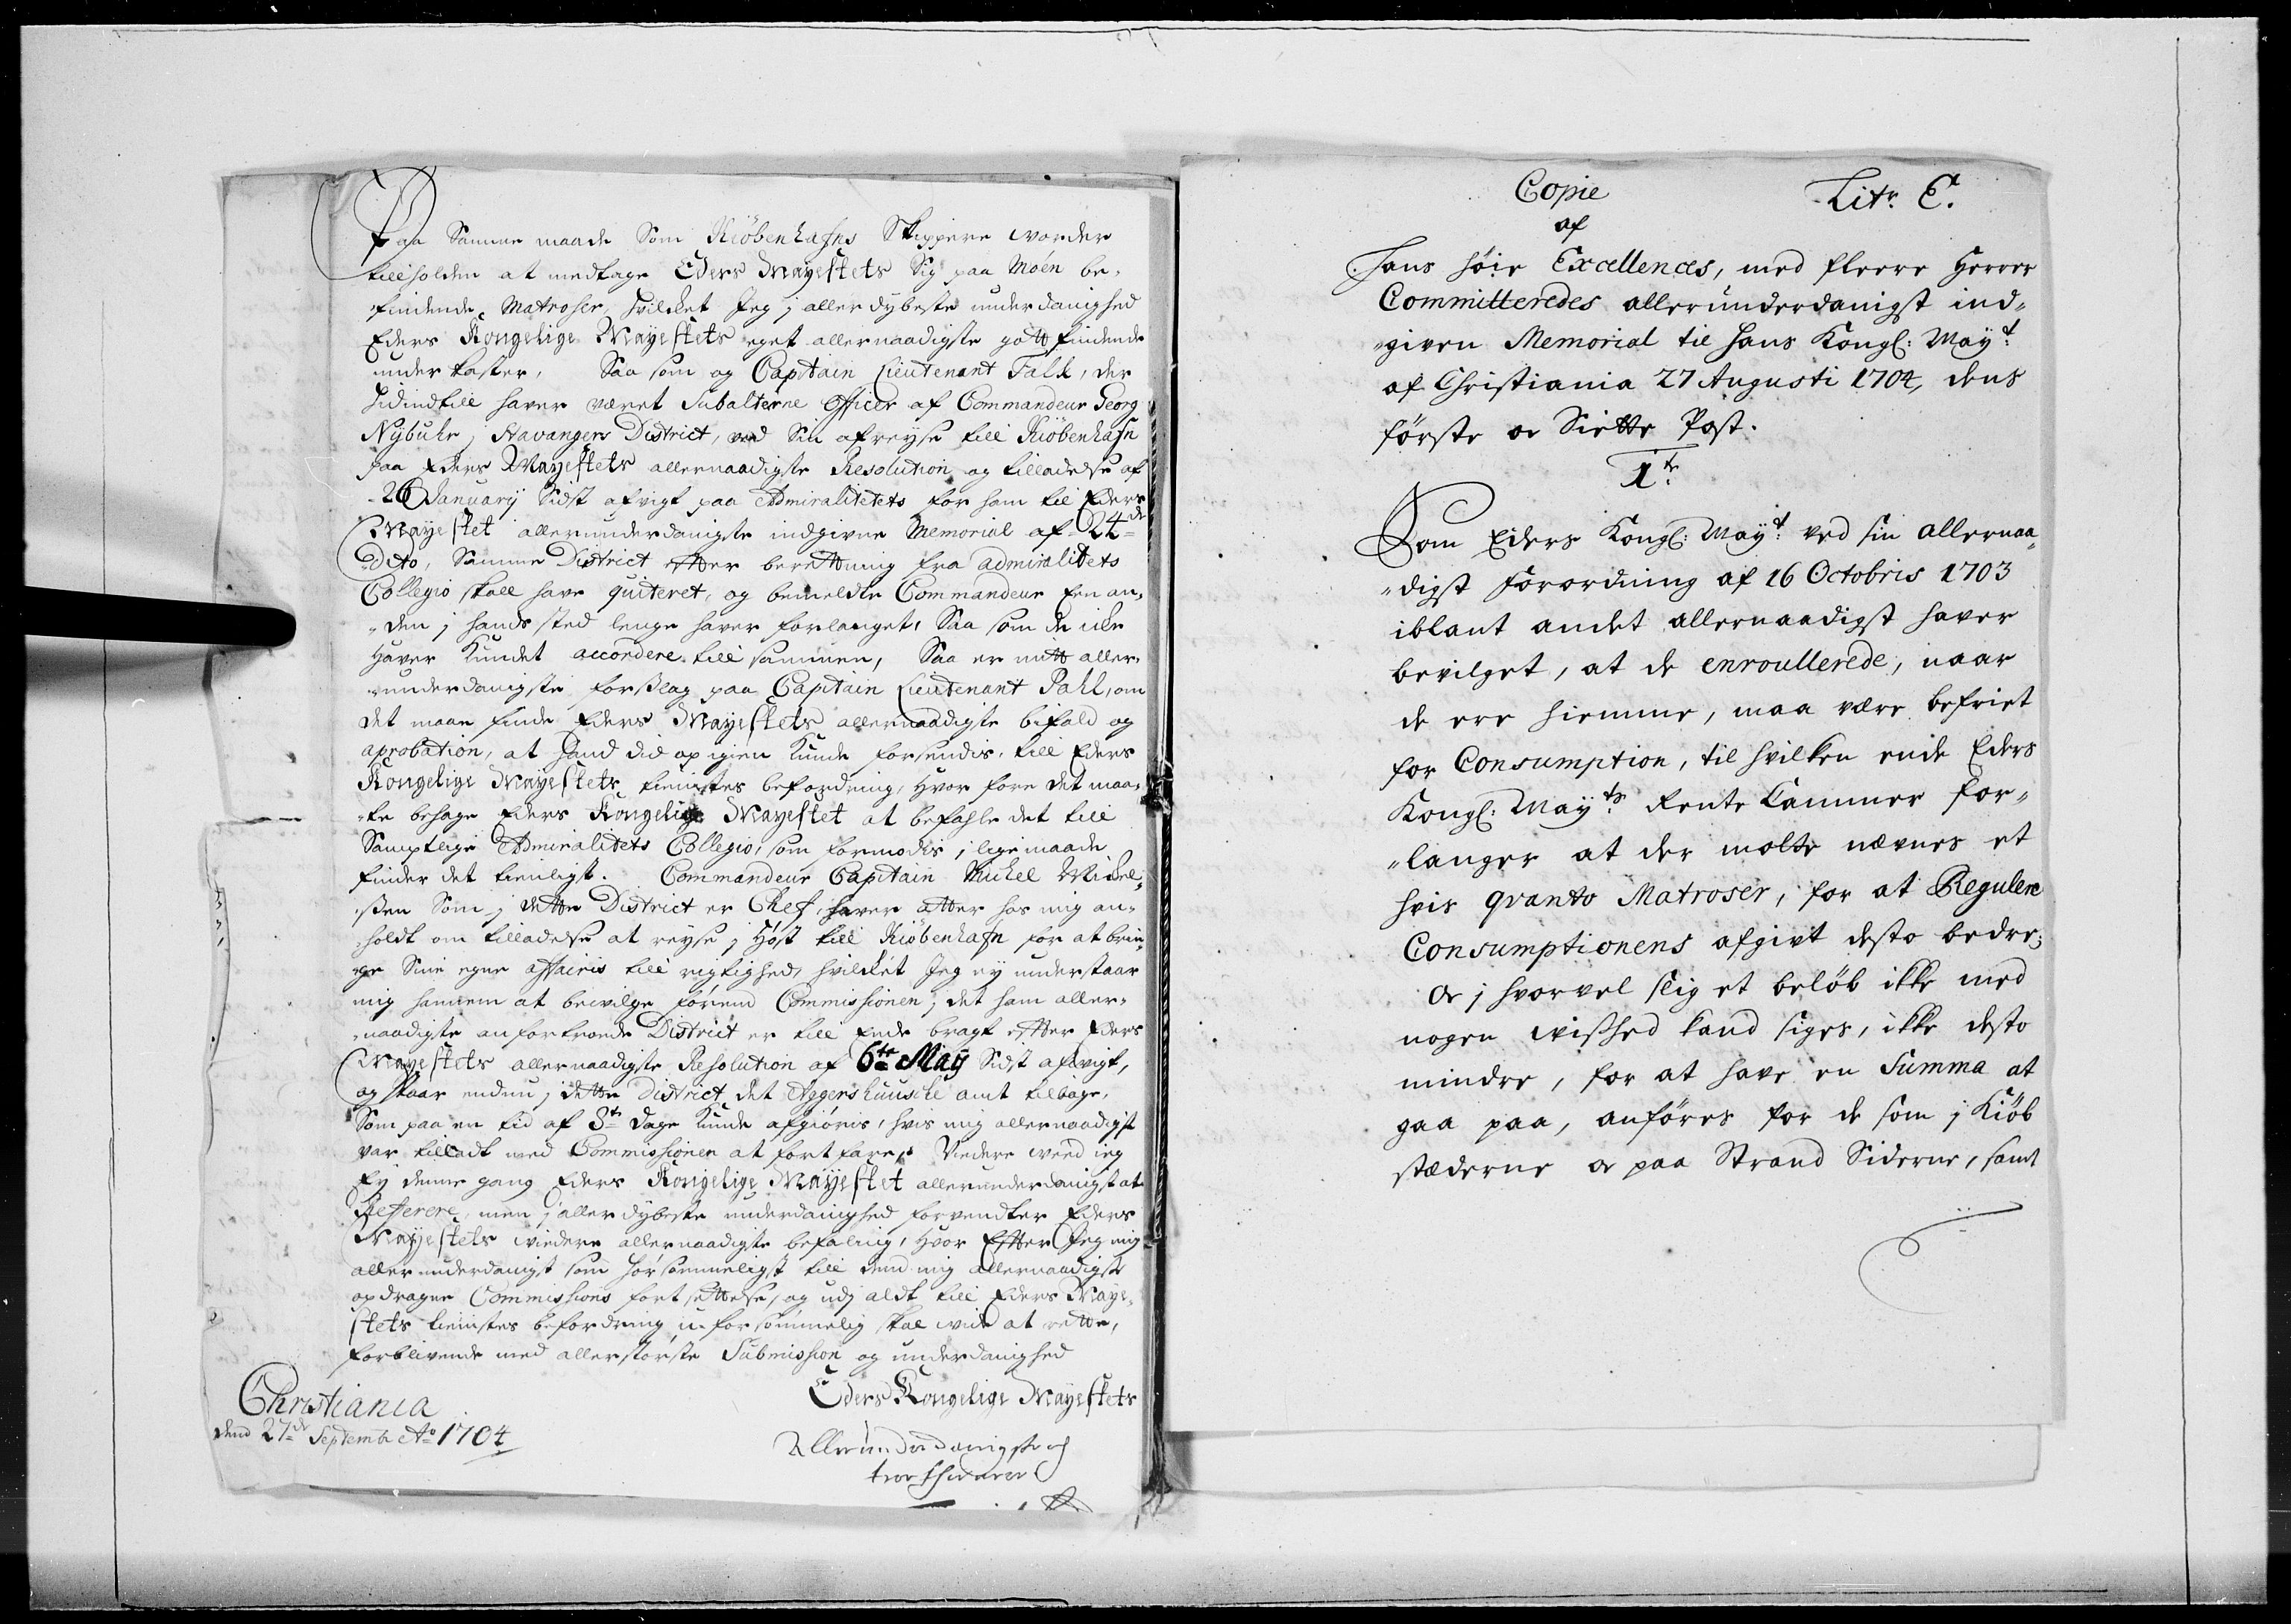 Paa Samme maade Som Kiöbenhafns Skippere worder
tillholden at medtage Eders Mayestets Sig paa Moen be-
findende Matroser, hvilcket Jeg j aller dybeste underdanighed
Eders Kongelige Mayestets eget allernaadigste gott findende
under kaster. Saa som og Capitain Lieutenant Falk, der
hidindtill haver været Subalterne Officer af Commandeur Georg
Nÿbuhr j Stavangers District, ved Sin afreyse till Kiöbenhafn
paa Eders Mayestets allernaadigste Resolution og tilladelse af
26 January Sidst afvigt paa Admiralitetets for ham til Eders
Mayestet allerunderdanigste indgivne Memorial af 24de
dito, Samme District effter berettning fra admiralitets
Collegio skall have quiteret, og bemeldte Commandeur Een an-
den j hands sted lenge haver forlanget, Saa som de icke
haver kundet accordere till sammen, Saa er mitt aller-
underdanigste forslag paa Capitain Lieutenant Pahl, om
det maae finde Eders Mayestets allernaadigste bifald og
aprobation, at hand did op igien kunde forsendis till Eders
Kongelige Mayestets tienistes befordring, hvor fore det maa-
tte behage Eders Kongelige Mayestet at befahle det till
Samptlige Admiralitets Collegio, som formodes j lige maade
finder det tienligt. Commandeur Capitain Michel Michel-
sen Som j dette District er Chef, haver atter hos mig an-
holdt om tilladelse at reyse j Höst till Kiöbenhafn for at brin-
ge Sine egne affairis till rigtighed, hvilcket Jeg ey understaar
mig hannem at bevilge förend Commissionen j det ham aller-
naadigste anfortroede District er till Ende bragt effter Eders
Mayestets allernaadigste Resolution af 6te Maÿ Sidst afvigt,
og staar endnu j dette District det Aggershuuske amt tilbage,
Som paa en tid af 8te dage kunde afgiöris, hvis mig allernaadigst
var tilladt med Commissionen at fortfare. Viedere weed ieg
Ey denne gang Eders Kongelige Mayestet allerunderdanigst at
Refferere, men j aller dybeste underdanighed forvendter Eders
Mayestets wiedere allernaadigste befaling, hvor Effter Jeg mig
allerunderdanigst som hörsommeligst till dend mig allernaadigste
opdragne Commissions fortsettelse, og udj aldt till Eders Maye-
stets tienistes befordring u-forsömmelig skal wide at rette,
forblivende med allerstörste Submission og underdanighed
Eders Kongelige Mayestets
Christiania
dend 27de Septemb: Ao 1704
Allerunderdanigste og
troe tienere
Copie
Litr. E.
af
Hans höie Excellences, med fleere Herrer
Committeredes allerunderdanigst ind-
given Memorial til Hans Kongl: Mayt:
af Christiania 27 Augusti 1704, dens
förste oc Siette Post.
1te
Som Eders Kongl: Mayt: ved sin allernaa-
digst forordning af 16 Octobris 1703
iblant andet allernaadigst haver
bevilget, at de enroullerede, naar
de ere hiemme, maa være befriet
for Consumption, til hvilken ende Eders
Kongl: Mayts: Rente Kammer for-
langer at der motte nævnes et
hvis qvanto Matroser, for at Regulere
Consumptionens afgivt desto bedre;
Oc j hvorvel slig et belöb ikke med
nogen wished kand siges, ikke desto
mindre, for at have en Summa at
gaa paa, anföres for de som j Kiöb
stæderne oc paa Strand Siderne, samt